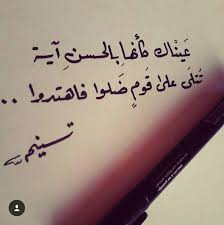 عَيْناك كأنها بالحسنِ آية
تُتلَى علىٰ قَومٍ ضَلوا فاهتدوا ..
تسنيم